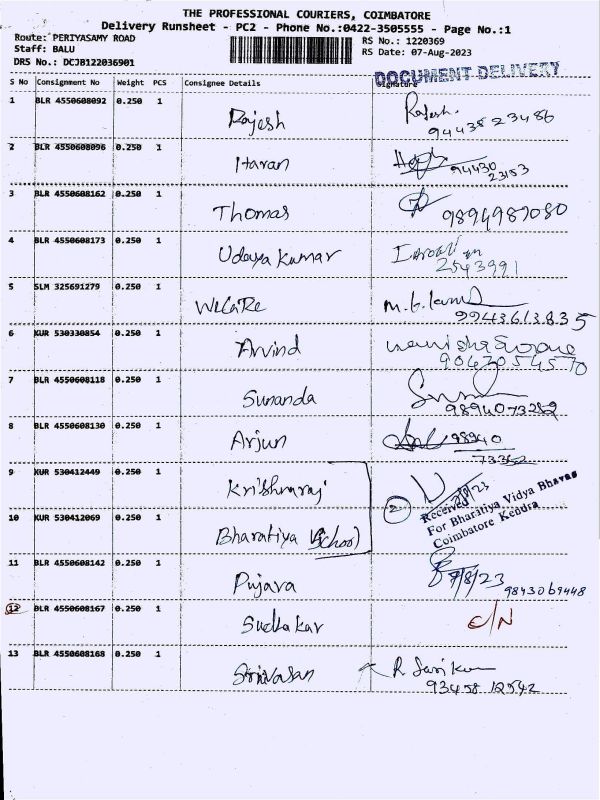 THE PROFESSIONAL COURIERS, COIMBATORE
Delivery Runsheet - PC2 - Phone No.:0422-3505555 - Page No.:1
Route: PERIYASAMY ROAD RS No.: 1220369
Staff: BALU RS Date: 07-Aug-2023
DRS No.: DCJB122036901
DOCUMENT DELIVERY
S No Consignment No Weight PCS Consignee Details Signature
1 BLR 4550608092 0.250 1
Rajesh Rajesh.
94438 23486
2 BLR 4550608096 0.250 1
Haran 94430
23153
3 BLR 4550608162 0.250 1
Thomas 9894987080
4 BLR 4550608173 0.250 1
Udaya Kumar
2543991
5 SLM 325691279 0.250 1
WeCaRe
99443613835
6 KUR 530330854 0.250 1
Arvind
7 BLR 4550608118 0.250 1
Sunanda
8 BLR 4550608130 0.250 1
Arjun 98940
9 KUR 530412449 0.250 1
Krishnaraj
Received
For Bharatiya Vidya Bhavan
Coimbatore Kendra
10 KUR 530412069 0.250 1
Bharatiya V(School) 2
11 BLR 4550608142 0.250 1
Pujara 7/8/23
9843069448
12 BLR 4550608167 0.250 1
Sudhakar C/N
13 BLR 4550608168 0.250 1
Srinivasan
93458 12542